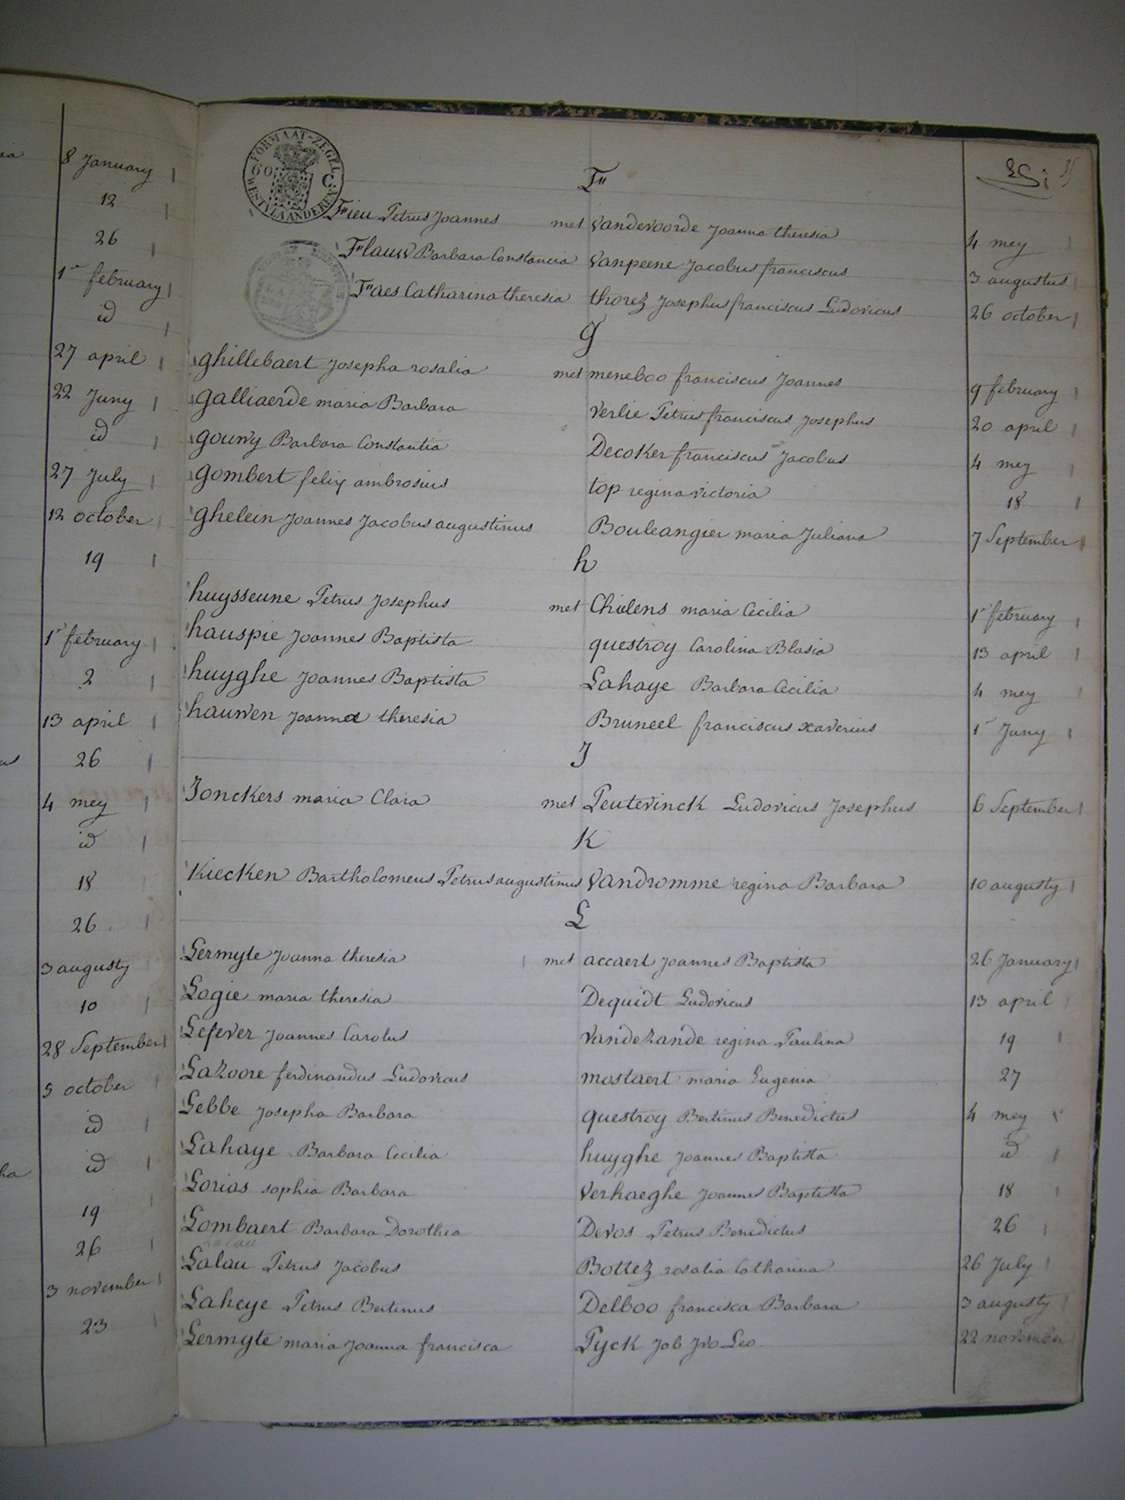 8 January
12
26
1r february
id
27 april
22 Juny
id
27 July
12 october
19
1r february
2
13 april
26
4 mey
id
18
26
3 augusty
10
28 September
5 october
id
id
19
26
3 november
23
FORMAAT-ZEGEL
60 C
WESTVLAANDEREN
F
Fieu Petrus Joannes met Vandevoorde Joanna theresia 4 mey
Flauw Barbara Constancia Vanpeene Jacobus franciscus 3 augustus
Faes Catharina theresia thorez Josephus franciscus Ludovicus 26 october
g
ghillebaert Josepha rosalia met meneboo franciscus Joannes 9 february
galliaerde maria Barbara Verlie Petrus franciscus Josephus 20 april
gouwy Barbara Constantia Decoker franciscus Jacobus 4 mey
gombert felix ambrosius top regina victoria 18
ghelein Joannes Jacobus augustinus Bouleangier maria Juliana 7 September
h
huysseune Petrus Josephus met Chielens maria Cecilia 1r february
hauspie Joannes Baptista questroy Carolina Blasia 13 april
huyghe Joannes Baptista Lahaye Barbara Cecilia 4 mey
hauwen Joanna theresia Bruneel franciscus xaverius 1r Juny
J
Jonckers maria Clara met Peutevinck Ludovicus Josephus 6 September
K
Kiecken Bartholomeus Petrus augustinus Vandromme regina Barbara 10 augusty
L
Lermyte Joanna theresia met accaert Joannes Baptista 26 January
Logie maria theresia Dequidt Ludovicus 13 april
Lefever Joannes Carolus Vandezande regina Paulina 19
Lazoore ferdinandus Ludovicus mostaert maria Eugenia 27
Lebbe Josepha Barbara questroy Bertinus Benedictus 4 mey
Lahaye Barbara Cecilia huyghe Joannes Baptista id
Lorias sophia Barbara Verhaeghe Joannes Baptista 18
Lombaert Barbara Dorothea Devos Petrus Benedictus 26
Lalau Petrus Jacobus Bottez rosalia Catharina 26 July
Laheye Petrus Bertinus Delboo francisca Barbara 3 augusty
Lermyte maria Joanna francisca Pyck Job Jvo Leo 22 november